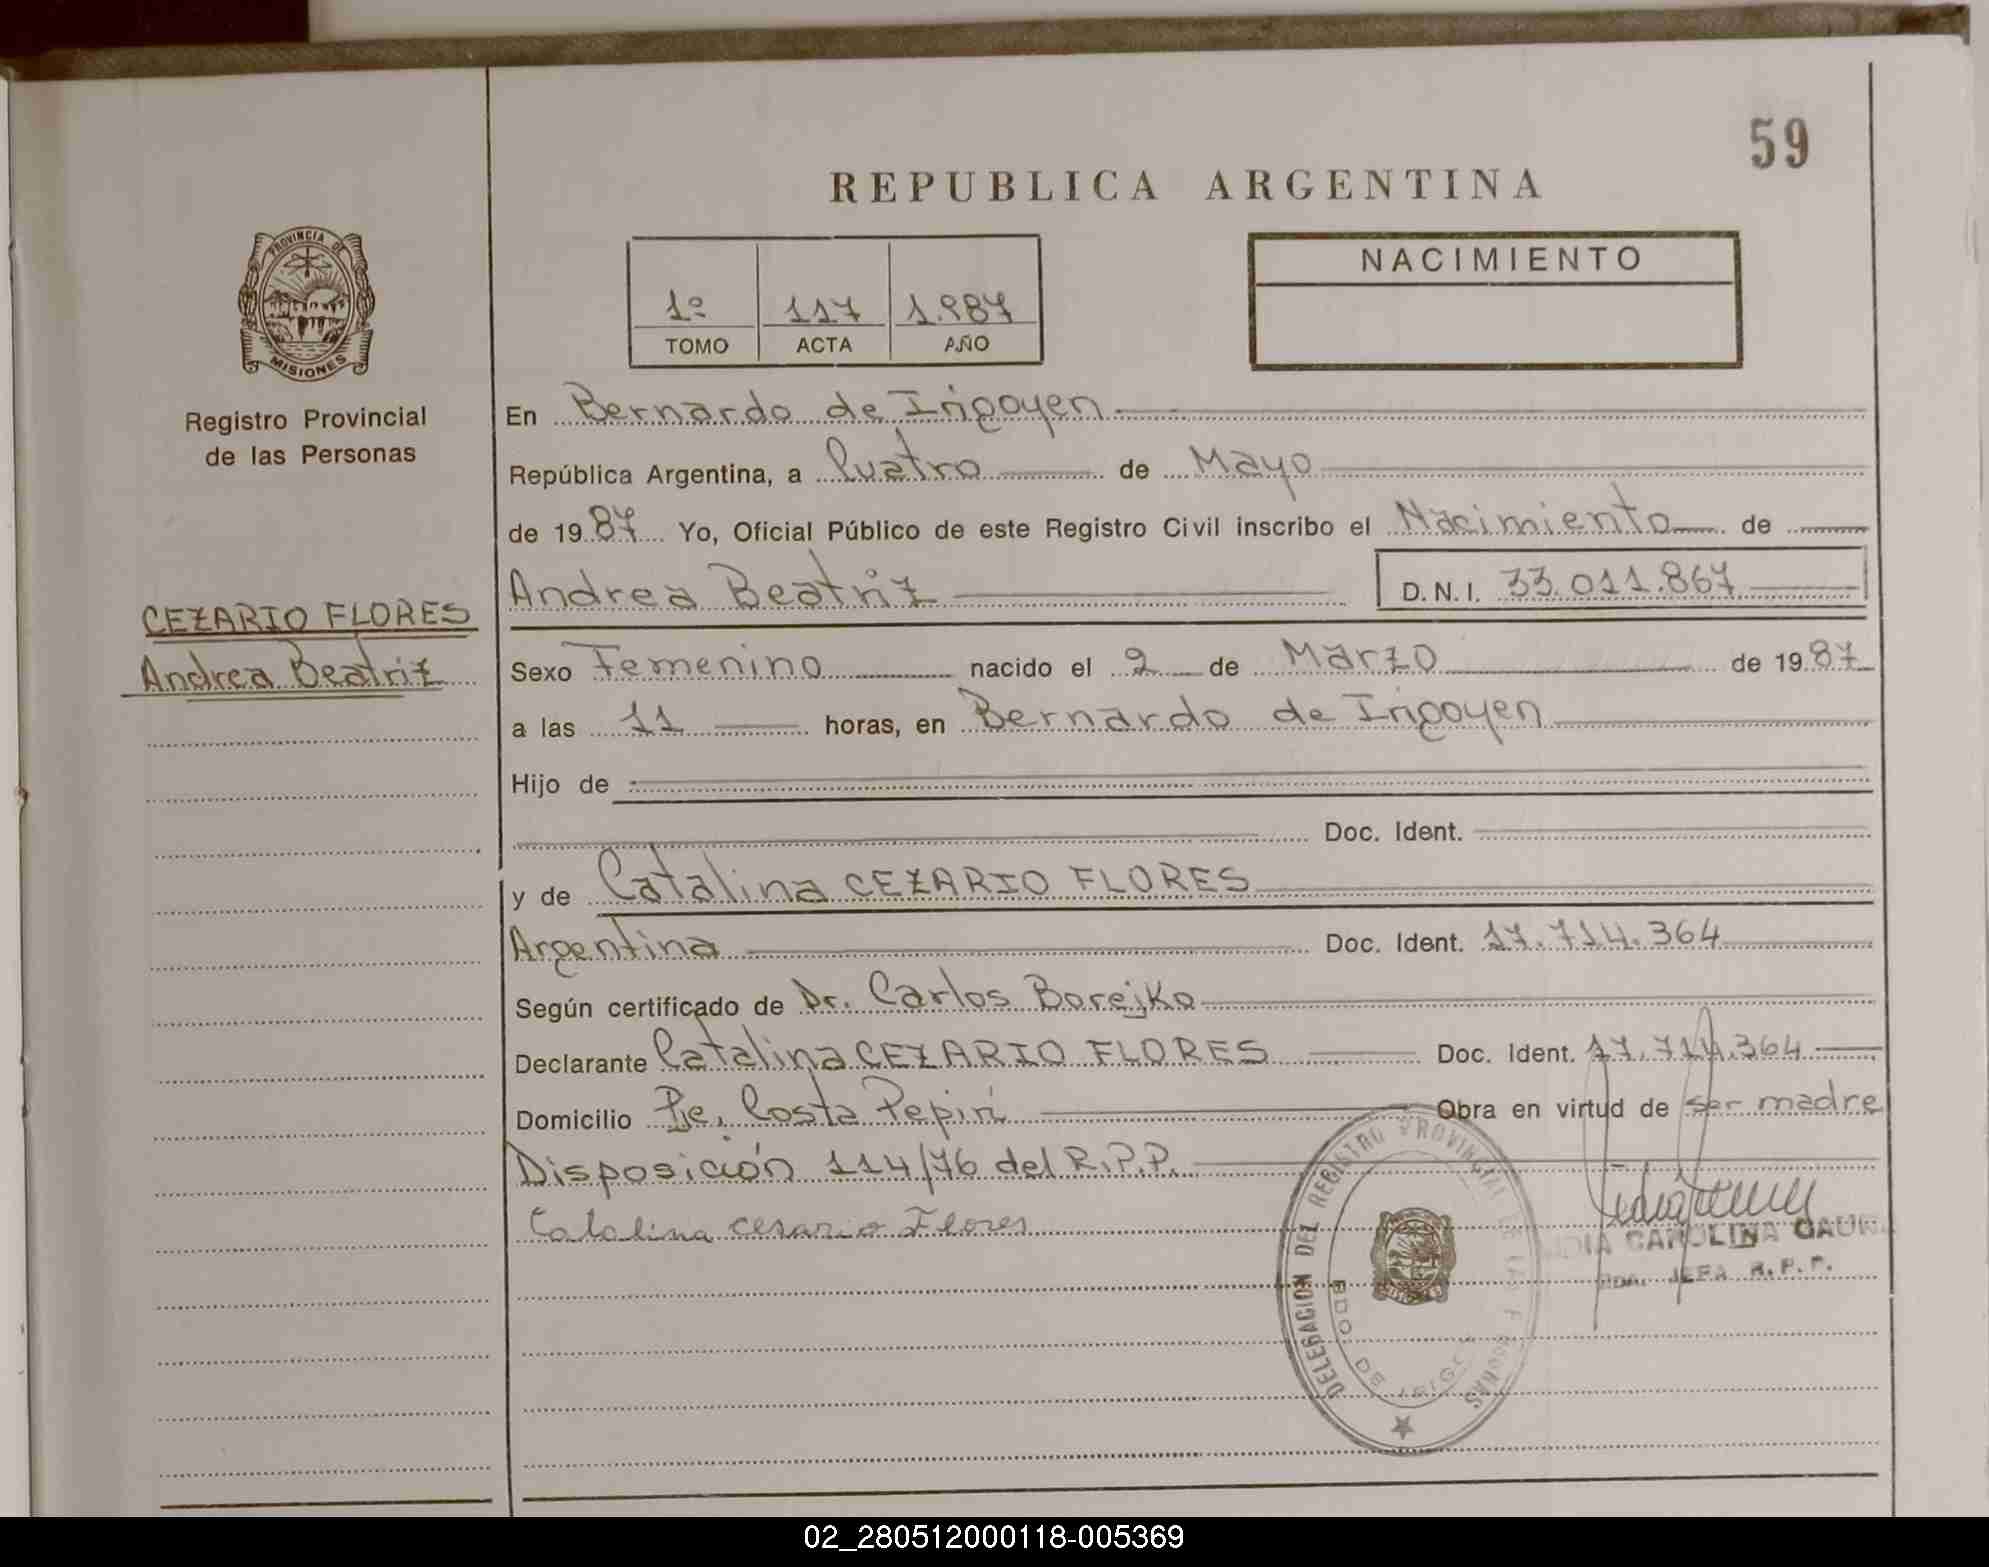 59
REPUBLICA ARGENTINA
PROVINCIA DE
MISIONES
Registro Provincial
de las Personas
1º 117 1.987
TOMO ACTA AÑO
NACIMIENTO
En Bernardo de Irigoyen
República Argentina, a Cuatro de Mayo
de 1987 Yo, Oficial Público de este Registro Civil inscribo el Nacimiento de
Andrea Beatriz D.N.I. 33.011.867
CEZARIO FLORES
Andrea Beatriz
Sexo Femenino nacido el 2 de Marzo de 1987
a las 11 horas, en Bernardo de Irigoyen
Hijo de
Doc. Ident.
y de Catalina CEZARIO FLORES
Argentina Doc. Ident. 17.714.364
Según certificado de Dr. Carlos Borejko
Declarante Catalina CEZARIO FLORES Doc. Ident. 17.714.364
Domicilio Pje. Costa Pepirí Obra en virtud de ser madre
Disposición 114/76 del R.P.P.
Catalina Cesario Flores
CAROLINA
JEFA R.P.P.
DELEGACION DEL REGISTRO PROVINCIAL DE LAS PERSONAS
BDO. DE IRIGOYEN
02_280512000118-005369